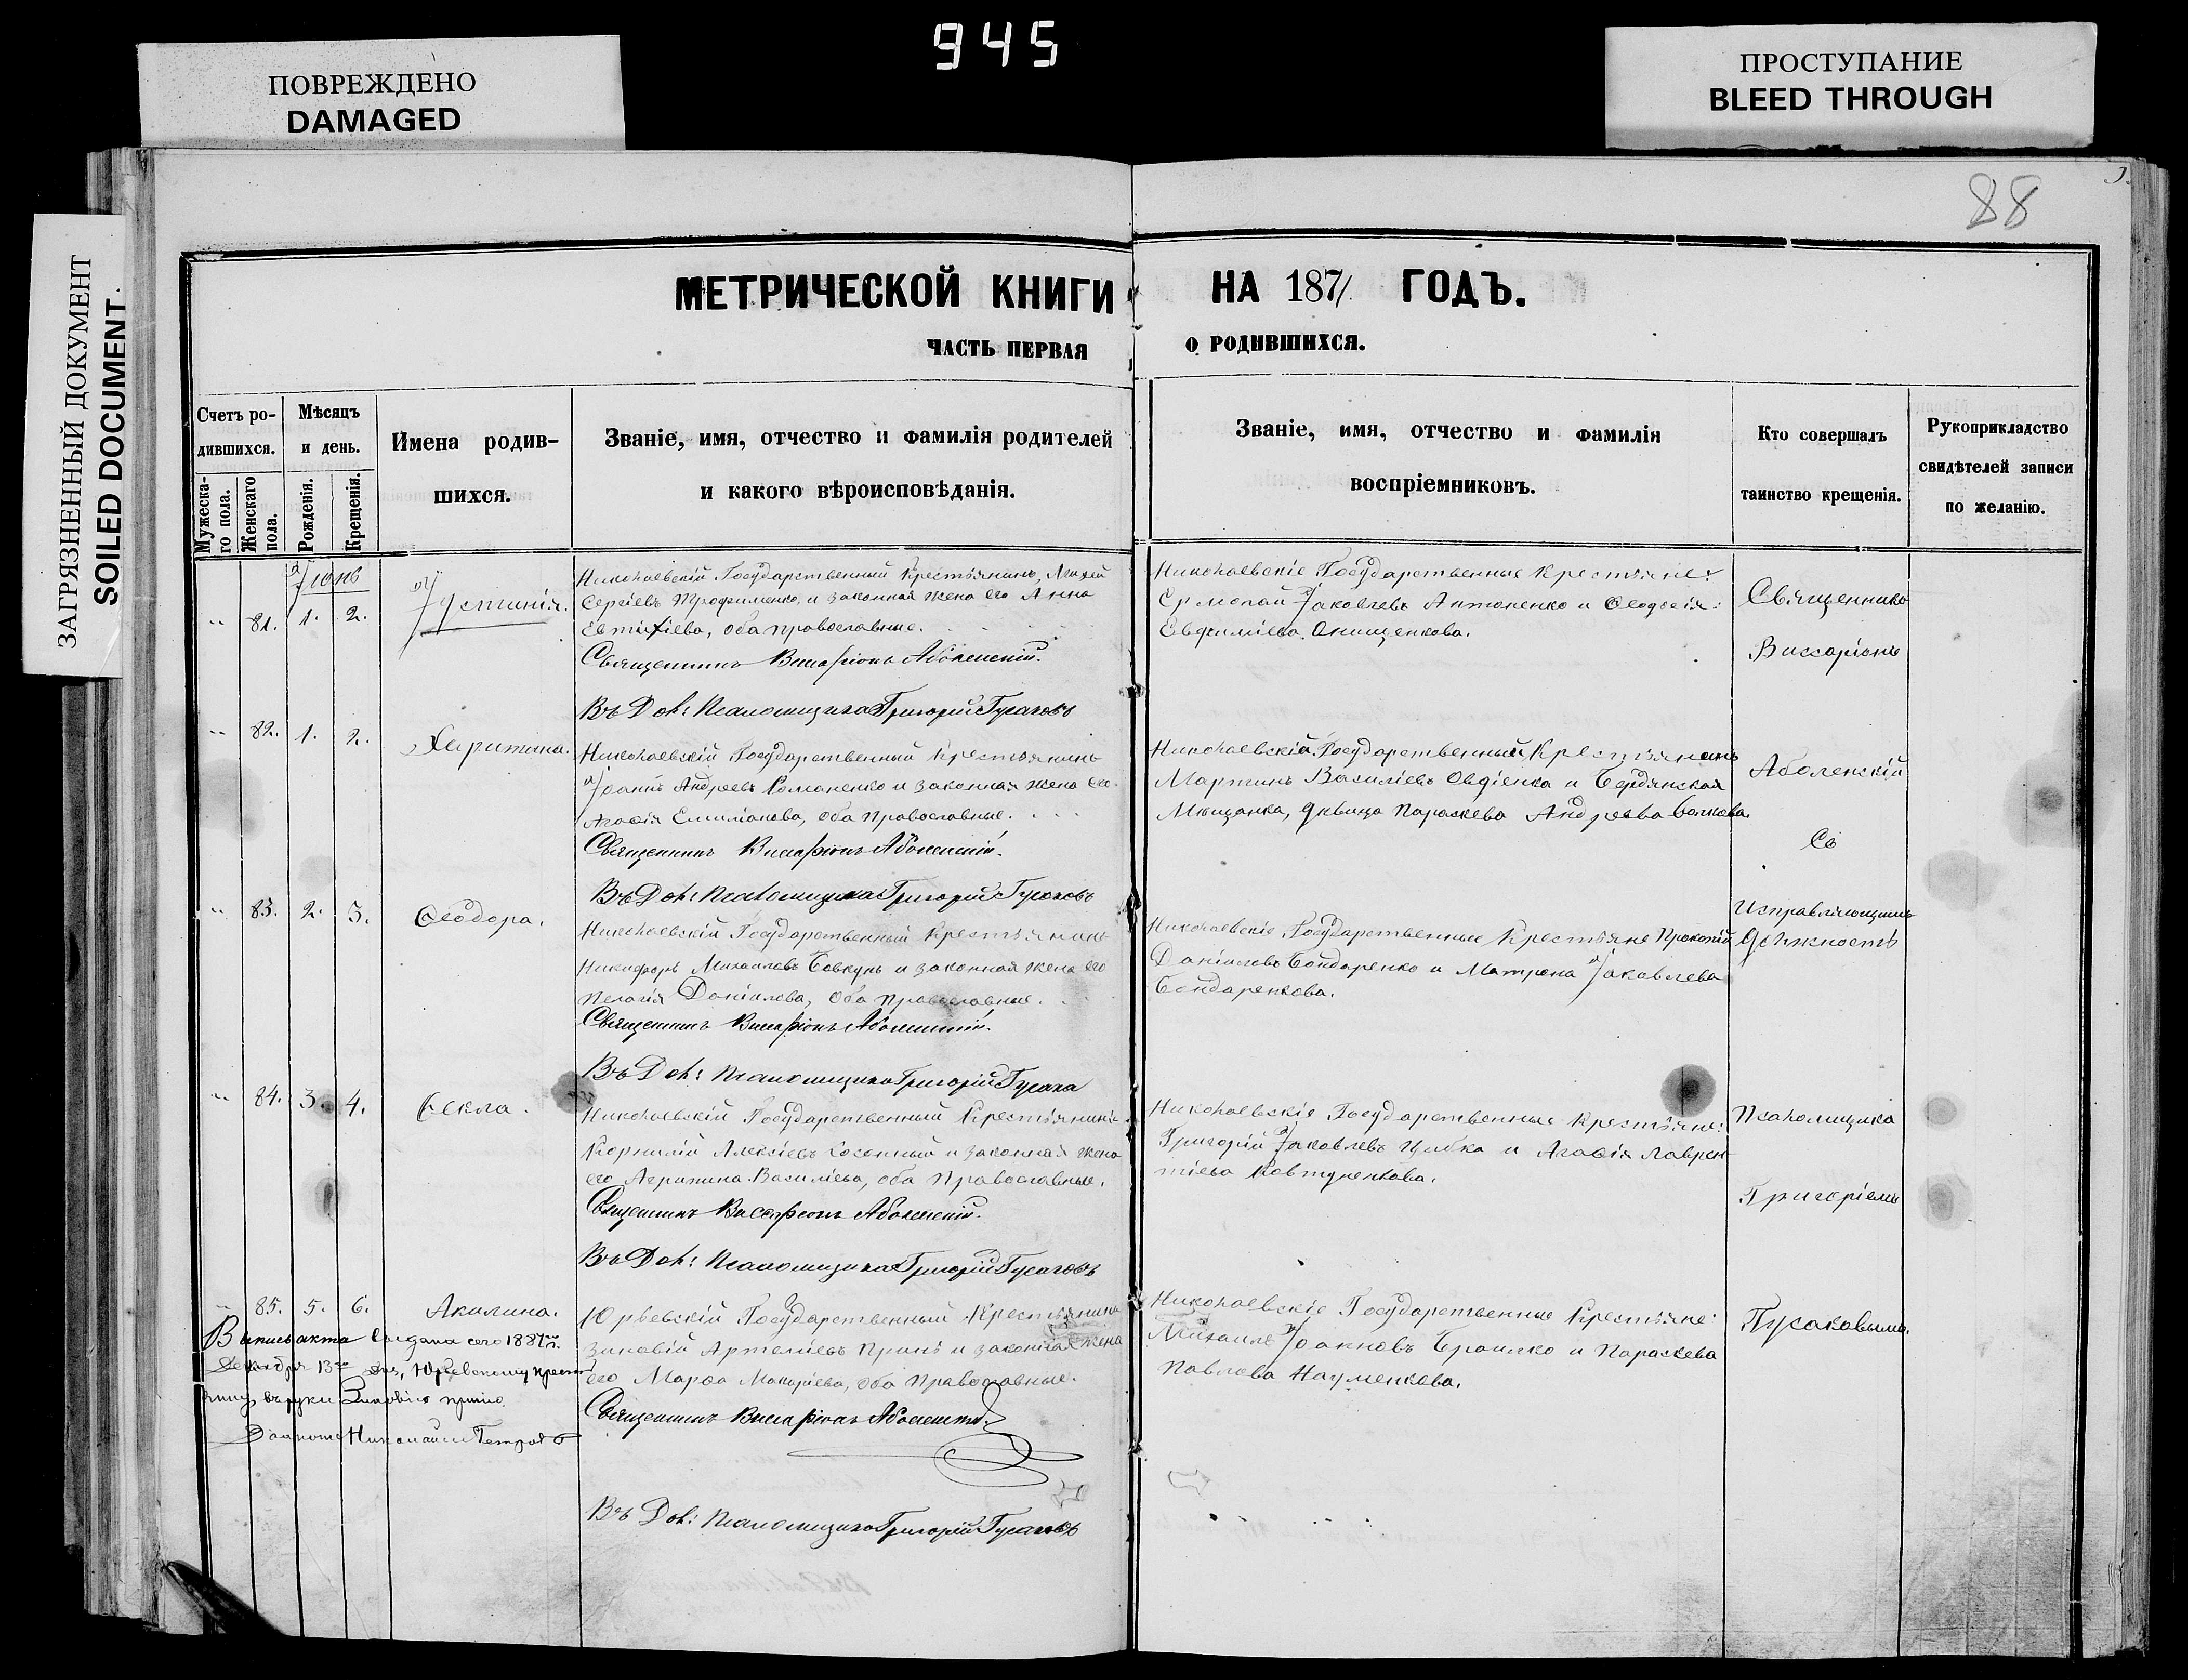 945
ПОВРЕЖДЕНО
DAMAGED
ПРОСТУПАНИЕ
BLEED THROUGH
ЗАГРЯЗНЕННЫЙ ДОКУМЕНТ
SOILED DOCUMENT
88
МЕТРИЧЕСКОЙ КНИГИ НА 1871 ГОДЪ.
ЧАСТЬ ПЕРВАЯ О РОДИВШИХСЯ.
Счетъ ро-
дившихся.
Мужеска-
го пола.
Женскаго
пола.
Мѣсяцъ
и день.
Рожденія.
Крещенія.
Имена родив-
шихся.
Званіе, имя, отчество и фамилія родителей
и какого вѣроисповѣданія.
Званіе, имя, отчество и фамилія
воспріемниковъ.
Кто совершалъ
таинство крещенія.
Рукоприкладство
свидѣтелей записи
по желанію.
Іюнь
81. 1. 2. Іустинія.
Николаевскій Государственный Крестьянинъ,
Сергіевъ Трофименко, и законная жена его Анна
Евтихіева, оба православные.
Священникъ Виссаріонъ Аболенскій.
Въ Дол: Псаломщика Григорій Гусаковъ
Николаевскіе Государственные Крестьяне:
Ермолай Іаковлевъ Антоненко и Ѳеодосія
Евфиміева Онищенкова.
82. 1. 2. Харитина.
Николаевскій Государственный Крестьянинъ
Іоаннъ Андреевъ Романенко и законная жена его
Агафія Емиліанова, оба Православные.
Священникъ Виссаріонъ Аболенскій.
Въ Дол: Псаломщика Григорій Гусаковъ
Николаевскій Государственный Крестьянинъ
Мартинъ Василіевъ Овдіенко и Бердянская
Мѣщанка, дѣвица Параскева Андреева
83. 2. 3. Ѳеодора.
Николаевскій Государственный Крестьянинъ
Никифоръ Михаиловъ Бовкунъ и законная жена его
Пелагія Даніилова, оба Православные.
Священникъ Виссаріонъ Аболенскій.
Въ Дол: Псаломщика Григорій Гусаковъ
Николаевскіе Государственные Крестьяне Прокопій
Даніиловъ Бондаренко и Матрона Іаковлева
Бондаренкова.
84. 3. 4. Ѳекла.
Николаевскій Государственный Крестьянинъ
Корнилій Алексіевъ и законная жена
его Агрипина Василіева, оба Православные.
Священникъ Виссаріонъ Аболенскій.
Въ Дол: Псаломщика Григорій Гусаковъ
Николаевскіе Государственные Крестьяне:
Григорій Іаковлевъ Цыбка и Агафія Лаврен
тіева Ковтуненкова.
85. 5. 6. Акилина.
Юрьевскій Государственный Крестьянинъ
Зиновій Артеміевъ и законная жена
его Марѳа Макаріева, оба Православные.
Священникъ Виссаріонъ Аболенскій.
Въ Дол: Псаломщика Григорій Гусаковъ
Николаевскіе Государственные Крестьяне:
Михаилъ Іоанновъ Браилко и Параскева
Павлова Науменкова.
Выпись акта выдана сего 1887 г.
Декабря 13го дня, Юрьевскому крестья
нину, въ руки Зиновію
Николай Петровъ
Священникъ
Виссаріонъ
Аболенскій
Съ
Исправляющимъ
Должность
Псаломщика
Григоріемъ
Гусаковымъ.